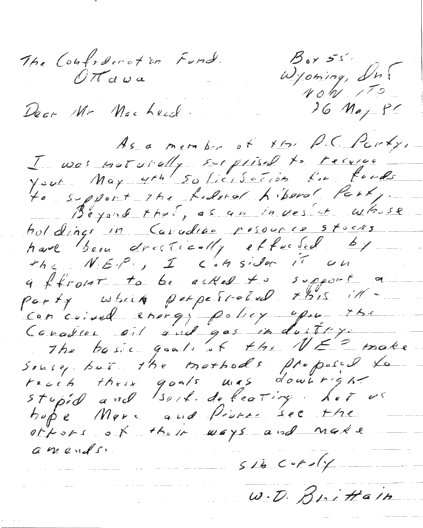 The Confederation Fund.
Ottawa
Box 55.
Wyoming, Ont
N0N 1T0
26 May 81
Dear Mr Macleod.
As a member of the P.C. Party,
I was naturally surprised to receive
your May 4th solicitation for funds
to support the federal Liberal Party.
Beyond that, as an investor whose
holdings in Canadian resource stocks
have been drastically effected by
the N.E.P., I consider it an
affront to be asked to support a
party which perpetrated this ill-
concuived energy policy upon the
Canadian oil and gas industry.
The basic goals of the NEP make
sense, but the methods proposed to
reach these goals was downright
stupid and self defeating. Let us
hope Marc and Pierre see the
errors of their ways and make
amends.
Sincerely
W.D. Brittain